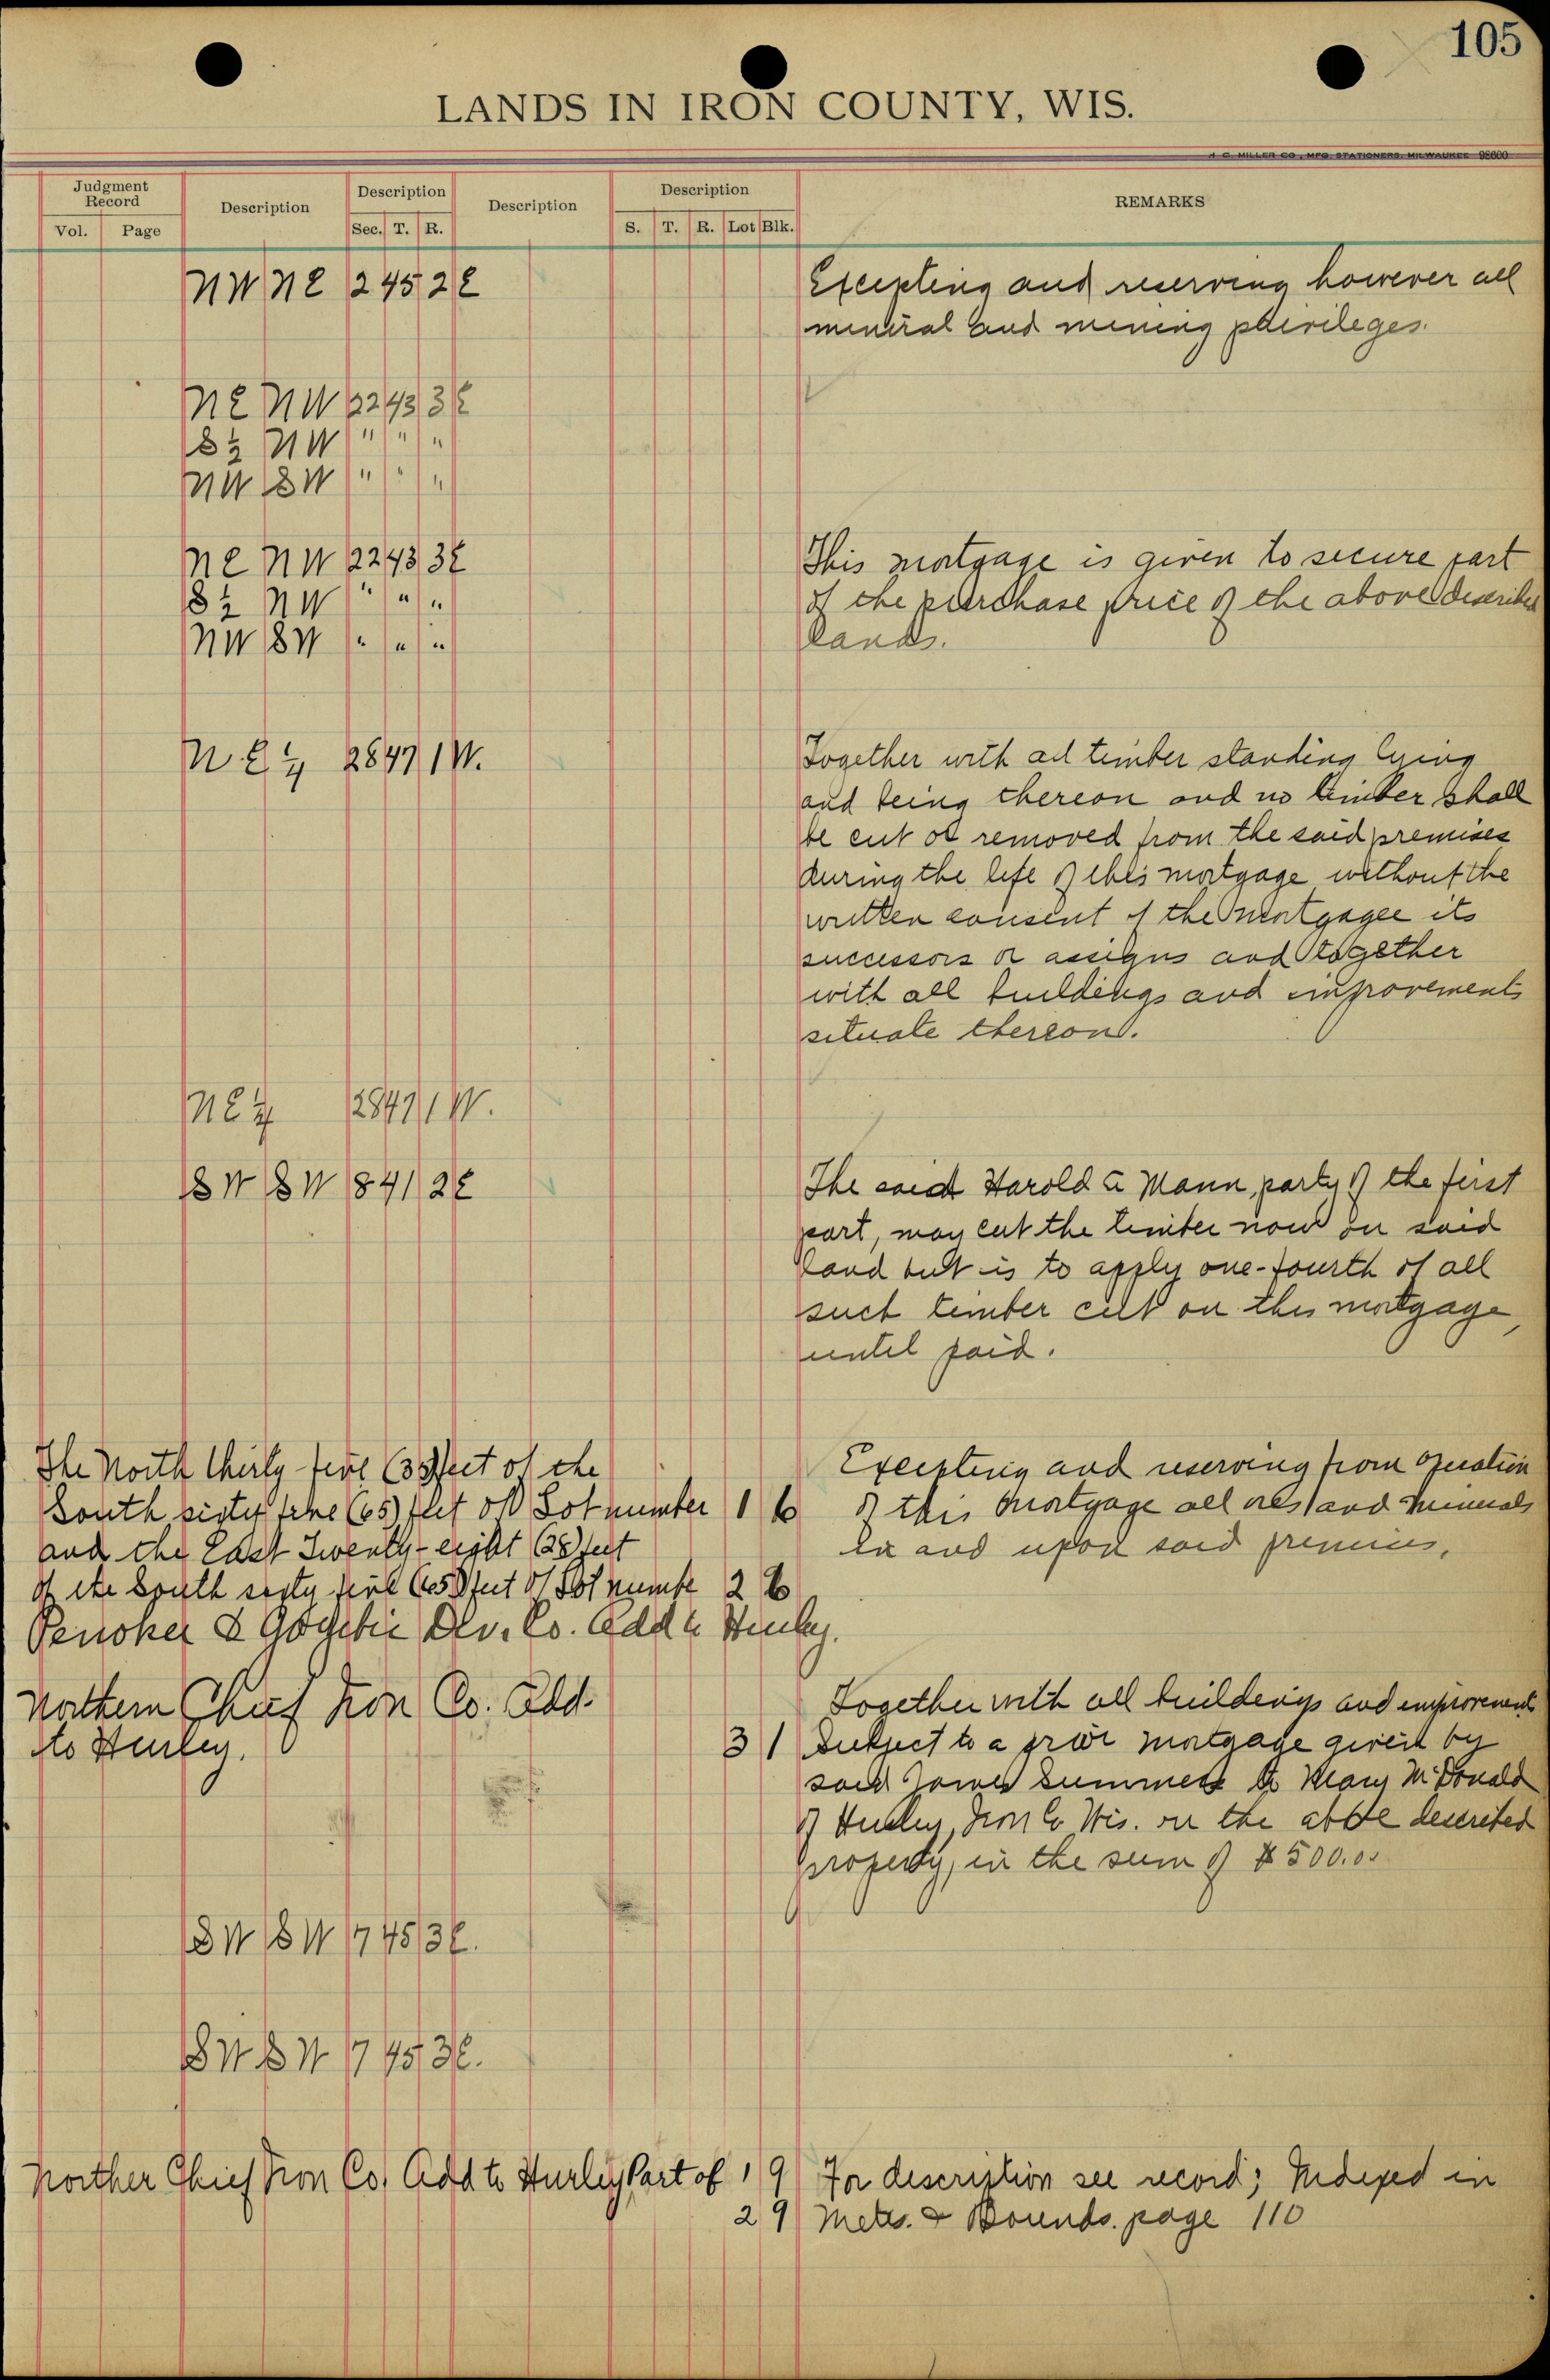 105
LANDS IN IRON COUNTY, WIS.
H. C. MILLER CO., MFG. STATIONERS, MILWAUKEE 98600
Judgment Record
Vol. Page
Description
Description
Sec. T. R.
Description
Description
S. T. R. Lot Blk.
REMARKS
NW NE 2 45 2E
Excepting and reserving however all
mineral and mining privileges.
NE NW 22 43 3E
S½ NW " " "
NW SW " " "
NE NW 22 43 3E
S½ NW " " "
NW SW " " "
This mortgage is given to secure part
of the purchase price of the above described
lands.
NE¼ 28 47 1W.
Together with all timber standing lying
and being thereon and no timber shall
be cut or removed from the said premises
during the life of this mortgage without the
written consent of the mortgagee its
successors or assigns and together
with all buildings and improvements
situate thereon.
NE¼ 28 47 1W.
SW SW 8 41 2E
The said Harold G Mann, party of the first
part, may cut the timber now on said
land but is to apply one-fourth of all
such timber cut on this mortgage,
until paid.
The North thirty five (35) feet of the
South sixty five (65) feet of Lot number 1 6
and the East Twenty-eight (28) feet
of the South sixty five (65) feet of Lot numbe 2 6
Penokee & Gogebic Dev. Co. Add to Hurley.
Excepting and reserving from operation
of this mortgage all ores and minerals
in and upon said premises.
Northern Chief Iron Co. Add.
to Hurley. 3 1
Together with all buildings and improvements
Subject to a prior mortgage given by
said James Summers to Mary McDonald
of Hurley, Iron Co Wis. on the above described
property, in the sum of $500.00
SW SW 17 45 3E.
SW SW 17 45 3E.
Norther Chief Iron Co. Add to Hurley, Part of 1 9
2 9
For description see record; Indexed in
Metes. & Bounds. page 110